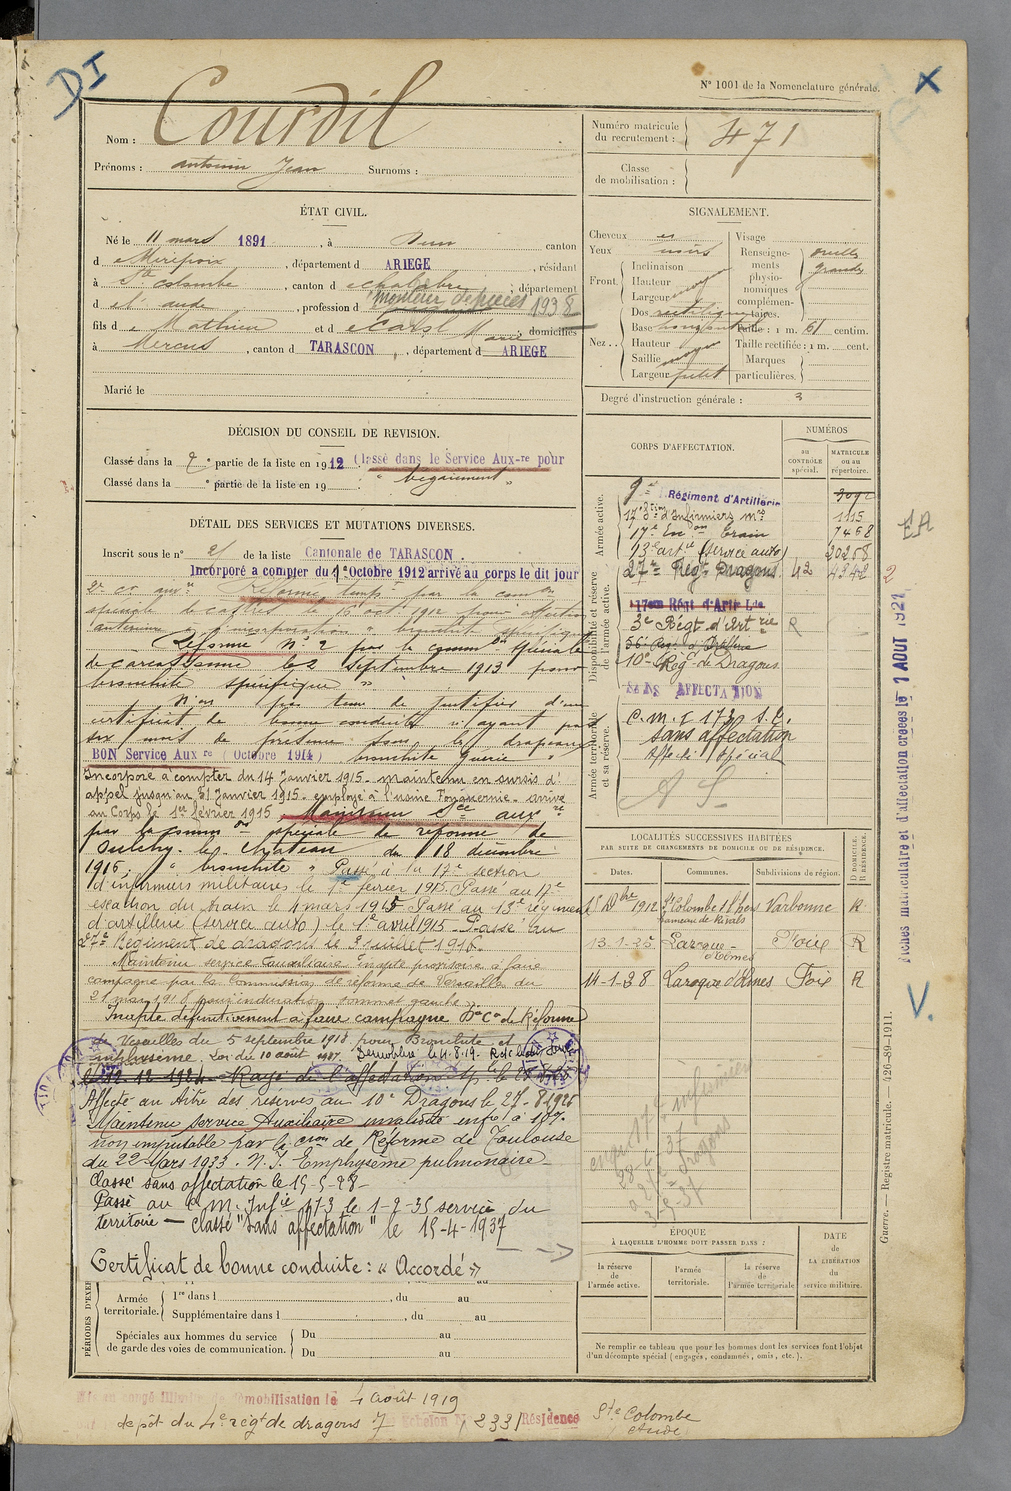 DI
N° 1001 de la Nomenclature générale.
X
Nom : Courdil
Prénoms : Antonin Jean Surnoms :
Numéro matricule du recrutement : 471
Classe de mobilisation :
ÉTAT CIVIL.
Né le 11 mars 1891, à Dun canton
d e Mirepoix, département d ARIEGE, résidant
à Ste Colombe, canton d e Chalabre, département
d e l'aude, profession d monteur de pièces 1938
fils d e Mathieu et d e Marie domiciliés
à Mercus, canton d TARASCON, département d ARIEGE
Marié le
SIGNALEMENT.
Cheveux
Yeux noirs
Front. Inclinaison
Hauteur
Largeur moy
Nez .. Dos rectiligne
Base horizontale
Hauteur
Saillie moyen
Largeur petit
Visage
Renseignements physionomiques complémentaires. oreilles grandes
Taille : 1 m. 61 centim.
Taille rectifiée : 1 m. cent.
Marques particulières.
Degré d'instruction générale : 3
DÉCISION DU CONSEIL DE REVISION.
Classé dans la 7e partie de la liste en 1912 (Classé dans le Service Aux-re pour
Classé dans la e partie de la liste en 19 . " bégaiement "
DÉTAIL DES SERVICES ET MUTATIONS DIVERSES.
Inscrit sous le n° 21 de la liste Cantonale de TARASCON.
Incorporé a compter du 1er Octobre 1912 arrivé au corps le dit jour
Réformé temp. par la com on
spéciale de Castres le 16 oct 1912 pour affection
antérieure à l'incorporation " bronchite spécifique
Réformé N° 2 par la comm on spéciale
de Carcassonne le 2 septembre 1913 pour
bronchite spécifique "
N'a pas tenu de justifier d'un
certificat de bonne conduite n'ayant pas
six mois de présence sous les drapeaux
BON Service Aux re (Octobre 1914) bronchite guérie "
Incorporé à compter du 14 Janvier 1915 - maintenu en sursis d'
appel jusqu'au 31 Janvier 1915 - employé à l'usine Fouquernie - arrivé
au Corps le 1er février 1915 Maintenu Sce aux re
par la comm on spéciale de réforme de
Oulchy-le-Château du 18 décembre
1915, " bronchite " Passé à la 17e section
d'infirmiers militaires le 1er février 1915 Passé au 17e
escadron du train le 4 mars 1915 Passé au 13e régiment
d'artillerie (service auto) le 1er avril 1915 - Passé au
27e Régiment de dragons le 3 juillet 1916
Maintenu service auxiliaire inapte provisoire à faire
campagne par la Commission de réforme de Versailles du
21 mai 1918 pour induration sommet gauche.
Inapte définitivement à faire campagne Don Con de Réforme
de Versailles du 5 septembre 1918 pour Bronchite et
emphysème. Démobilisé le 4.8.19.
Affecté au titre des réserves au 10e Dragons le 27-8-1925
Maintenu service Auxiliaire invalidité infre à 10%
non imputable par la Cion de Réforme de Toulouse
du 22 Mars 1933. N.I. Emphysème pulmonaire
Classé sans affectation le 15-5-28-
Passé au C M. Infie 173 le 1-2-35 service du
territoire - classé "Sans affectation" le 15-4-1937
Certificat de bonne conduite : « Accordé »
PÉRIODES D'EXER
Armée territoriale. 1re dans l , du au
Supplémentaire dans l , du au
Spéciales aux hommes du service de garde des voies de communication. Du au
Du au
CORPS D'AFFECTATION.
NUMÉROS
au CONTRÔLE spécial.
MATRICULE ou au répertoire.
Armée active.
Disponibilité et réserve de l'armée active.
Armée territoriale et sa réserve.
9e Régiment d'Artillerie
17e Son d'Infirmiers mres 1115
17e Eon train 7468
13e art (service auto) 20258
27e Régt Dragons 42 4342
17eme Régt d'Artie Lde
3e Régt d'Art rie
56e Reg. d'Artillerie
10e Reg de Dragons
SANS AFFECTATION
C. m. I 173 S.C.
Sans affectation
Affecté Spécial
A S
EA
2
Fiches matriculaire et d'affectation créées le 1 AOUT 1921
LOCALITÉS SUCCESSIVES HABITÉES
PAR SUITE DE CHANGEMENTS DE DOMICILE OU DE RÉSIDENCE.
Dates. Communes. Subdivisions de région. D DOMICILE. R RÉSIDENCE.
1er Dbre 1912 Ste Colombe s/ l'hers hameau de Rivals Narbonne R
13-1-25 Laroque-d'Olmes Foix R
14-1-38 Laroque d'Olmes Foix R
V.
ÉPOQUE
À LAQUELLE L'HOMME DOIT PASSER DANS :
la réserve de l'armée active.
l'armée territoriale.
la réserve de l'armée territoriale
DATE DE LA LIBÉRATION du service militaire.
Ne remplir ce tableau que pour les hommes dont les services font l'objet
d'un décompte spécial (engagés, condamnés, omis, etc.).
Guerre. — Registre matricule. — 426-89-1911.
Mis en congé illimité de démobilisation le 4 Août 1919
dépôt du 4e régt de dragons 7 Echelon N° 233 / Résidence Ste Colombe
Aude